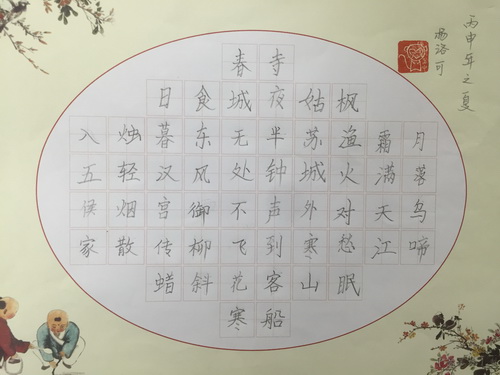 丙申年之夏
杨洛可
月落乌啼
霜满天江
枫渔火对愁眠
姑苏城外寒山
寺夜半钟声到客船
春城无处不飞花寒
食东风御柳斜
日暮汉宫传蜡
烛轻烟散
入五侯家